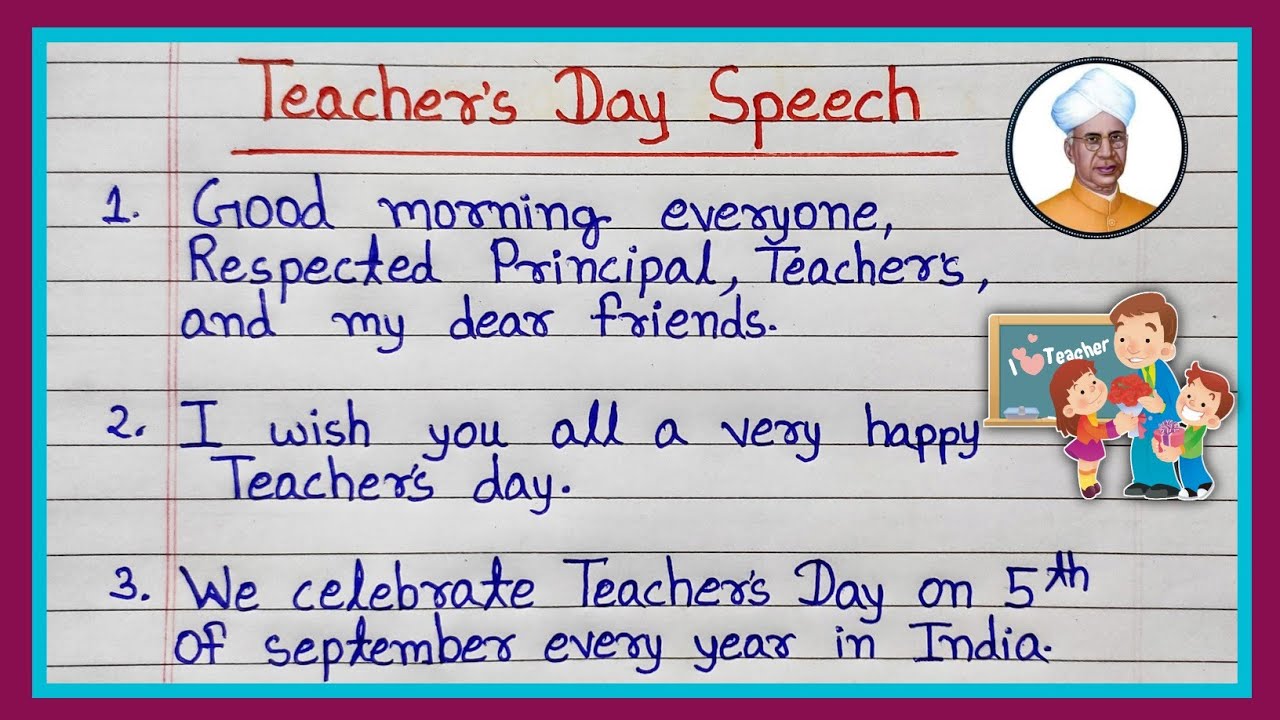 Teacher's Day Speech
1. Good morning everyone,
Respected Principal, Teacher's,
and my dear friends.
I ♥ Teacher
2. I wish you all a very happy
Teacher's day.
3. We celebrate Teacher's Day on 5th
of september every year in India.